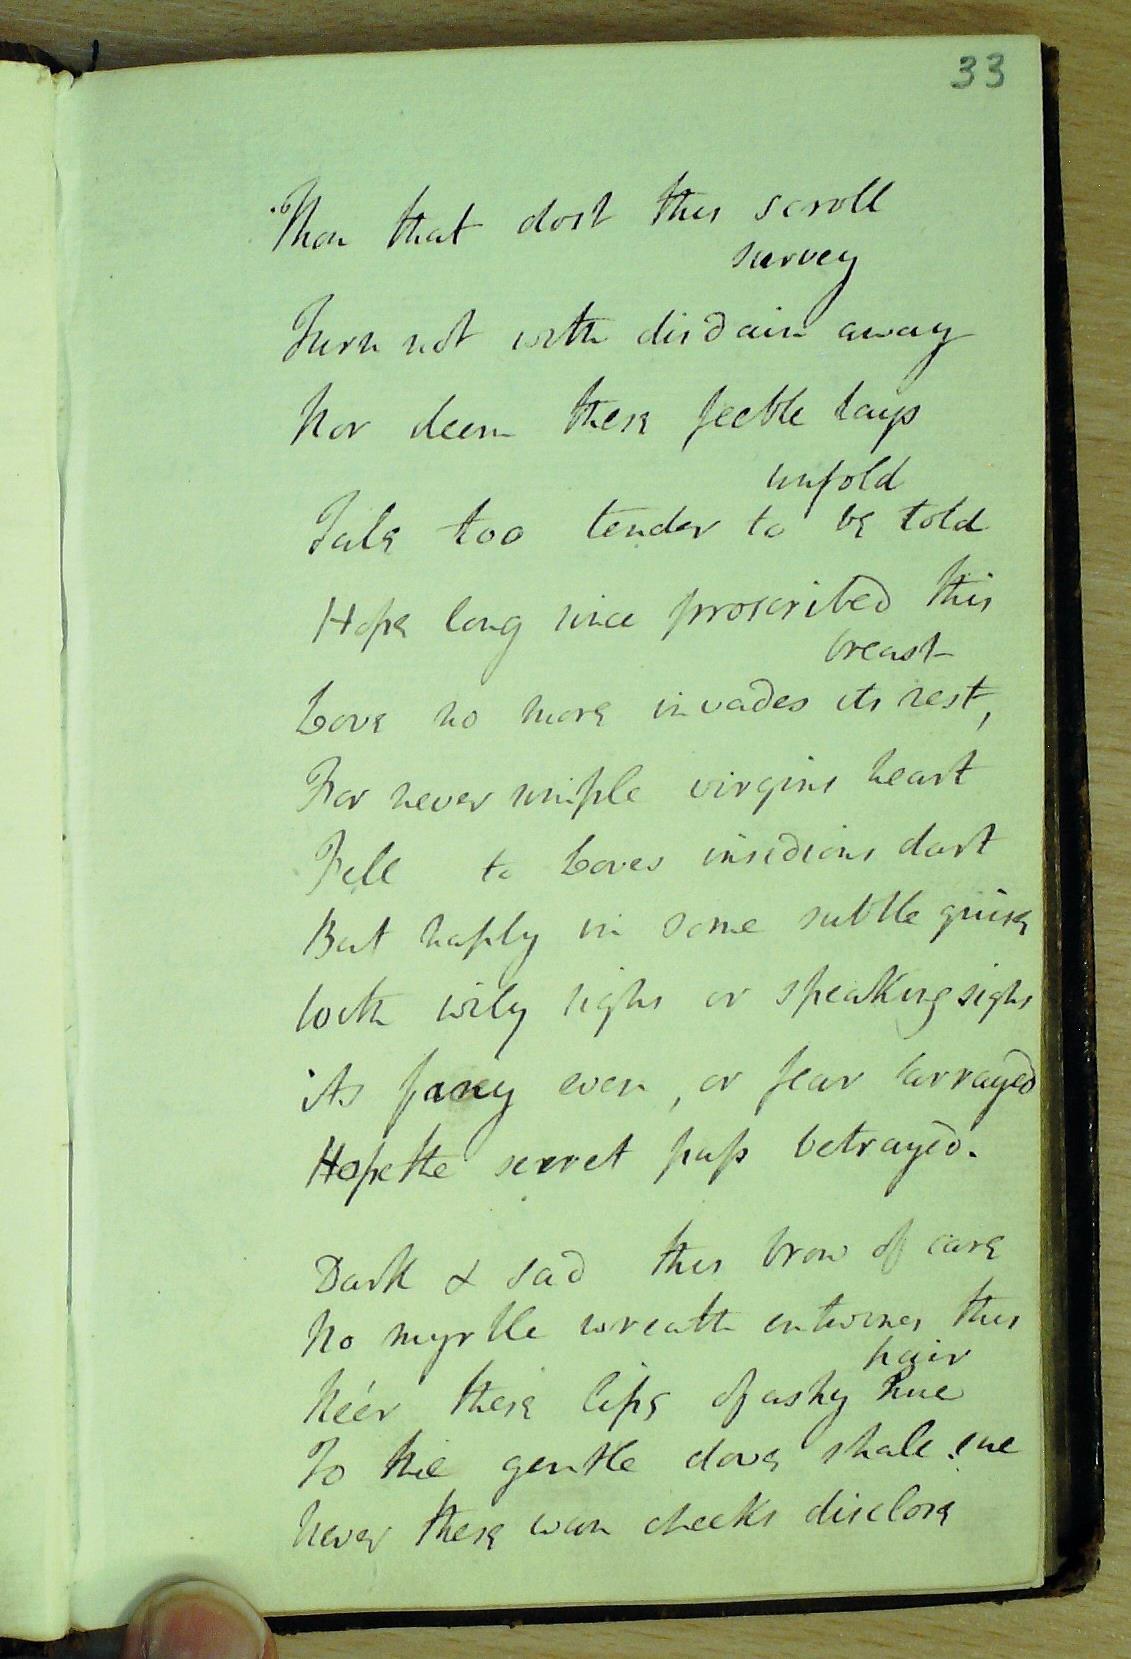 33
"Thou that dost this scroll
survey
Turn not with disdain away
Nor deem these feeble lays
unfold
Tale too tender to be told
Hope long since proscribed this
breast
Love no more invades its rest,
For never simple virgins heart
Fell to Loves insidious dart
But haply in some subtle guise
With wily sighs or speaking sighs
its fancy even, or fear arrayed
Hope the secret pass betrayed.
Dark & sad this brow of care
No myrtle wreath entwines this
hair
Ne'er these lips of ashy hue
To the gentle dove shall sue
Never these wan cheeks disclose